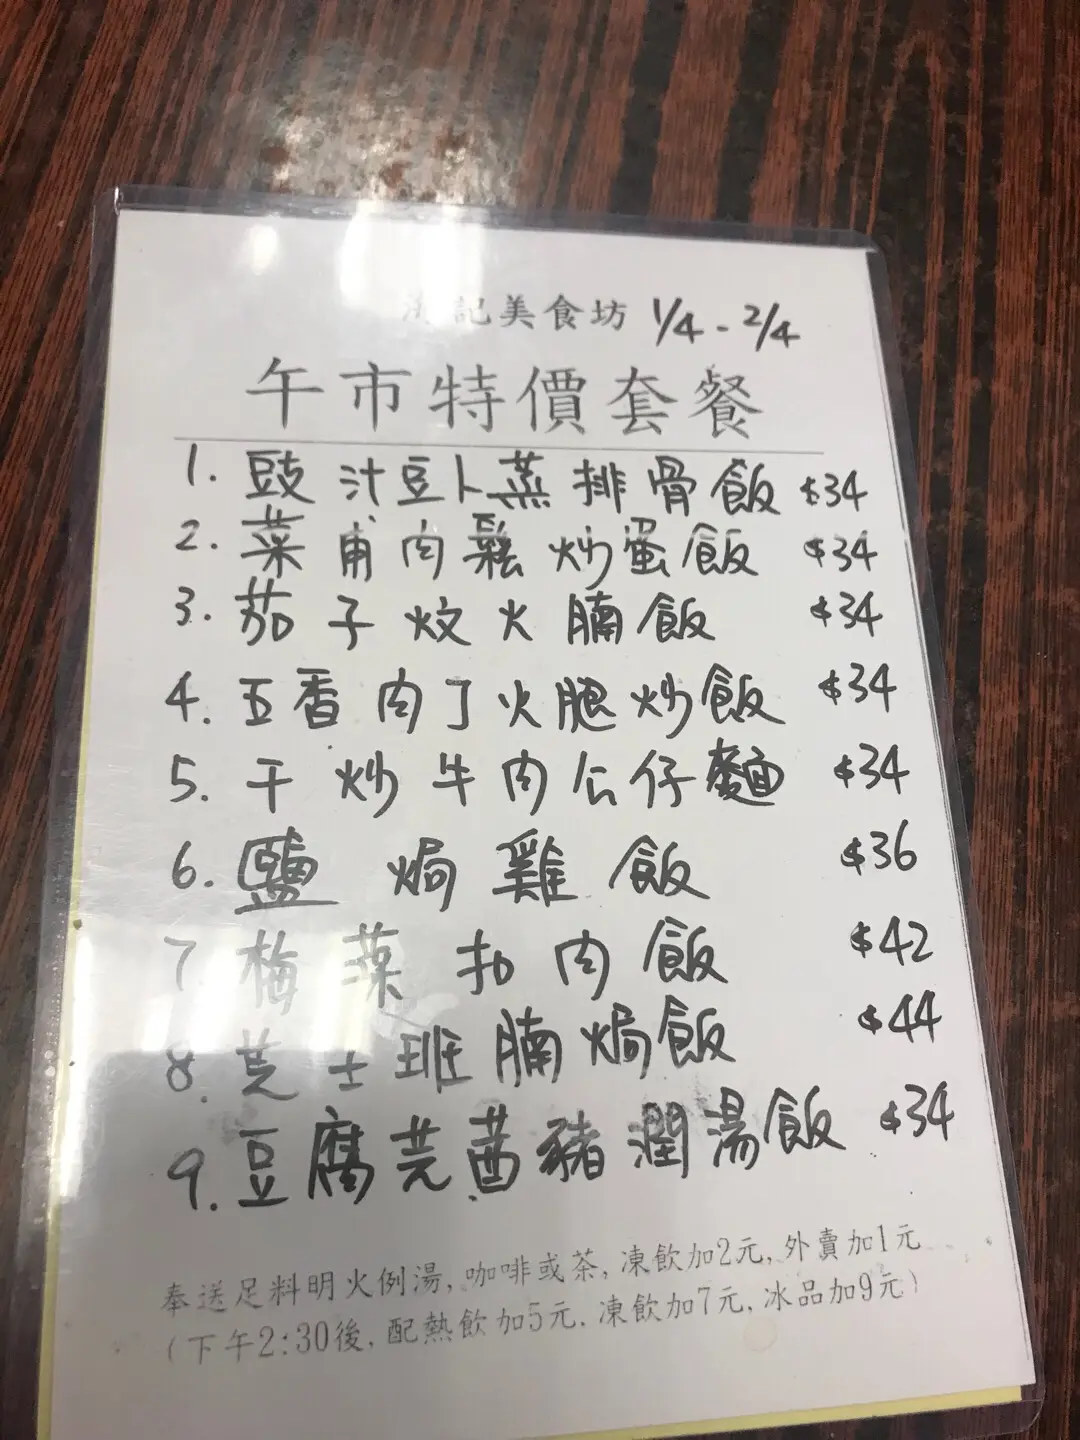 記美食坊 1/4 - 2/4
午市特價套餐
1. 豉汁豆卜蒸排骨飯 $34
2. 菜甫肉鬆炒蛋飯 $34
3. 茄子炆火腩飯 $34
4. 五香肉丁火腿炒飯 $34
5. 干炒牛肉公仔麵 $34
6. 鹽焗雞飯 $36
7. 梅菜扣肉飯 $42
8. 芝士班腩焗飯 $44
9. 豆腐芫茜豬潤湯飯 $34
奉送足料明火例湯, 咖啡或茶, 凍飲加2元, 外賣加1元
(下午2:30後, 配熱飲加5元, 凍飲加7元, 冰品加9元)